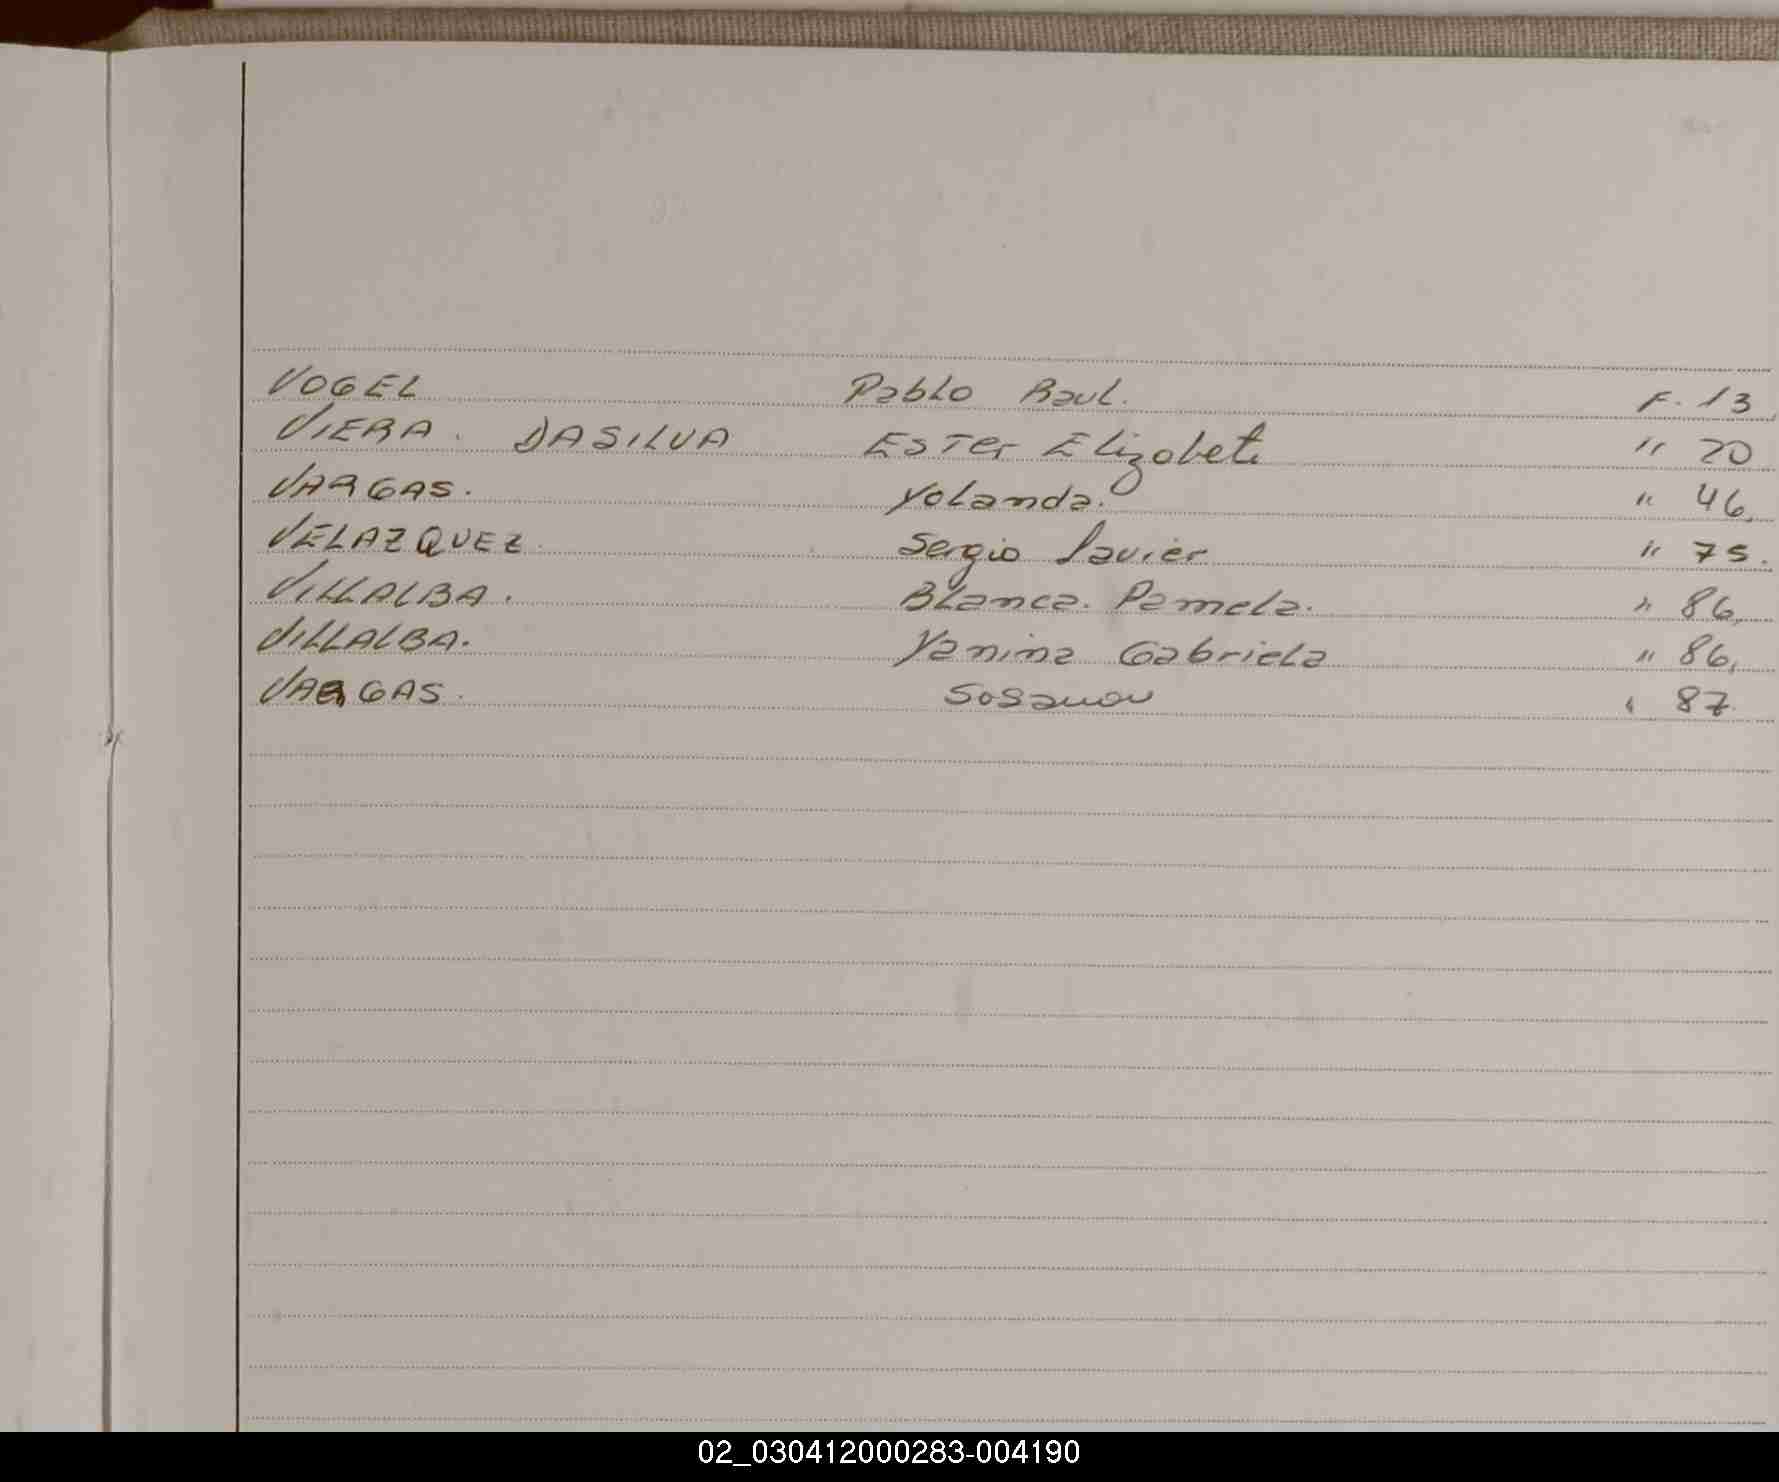 VOGEL Pablo Raul. F. 13
VIERA. DASILVA Ester Elizabete " 20
VARGAS. Yolanda. " 46.
VELAZQUEZ. Sergio Javier " 75.
VILLALBA. Blanca. Pamela. " 86.
VILLALBA. Yanina Gabriela " 86.
VARGAS. " 87.
02_030412000283-004190